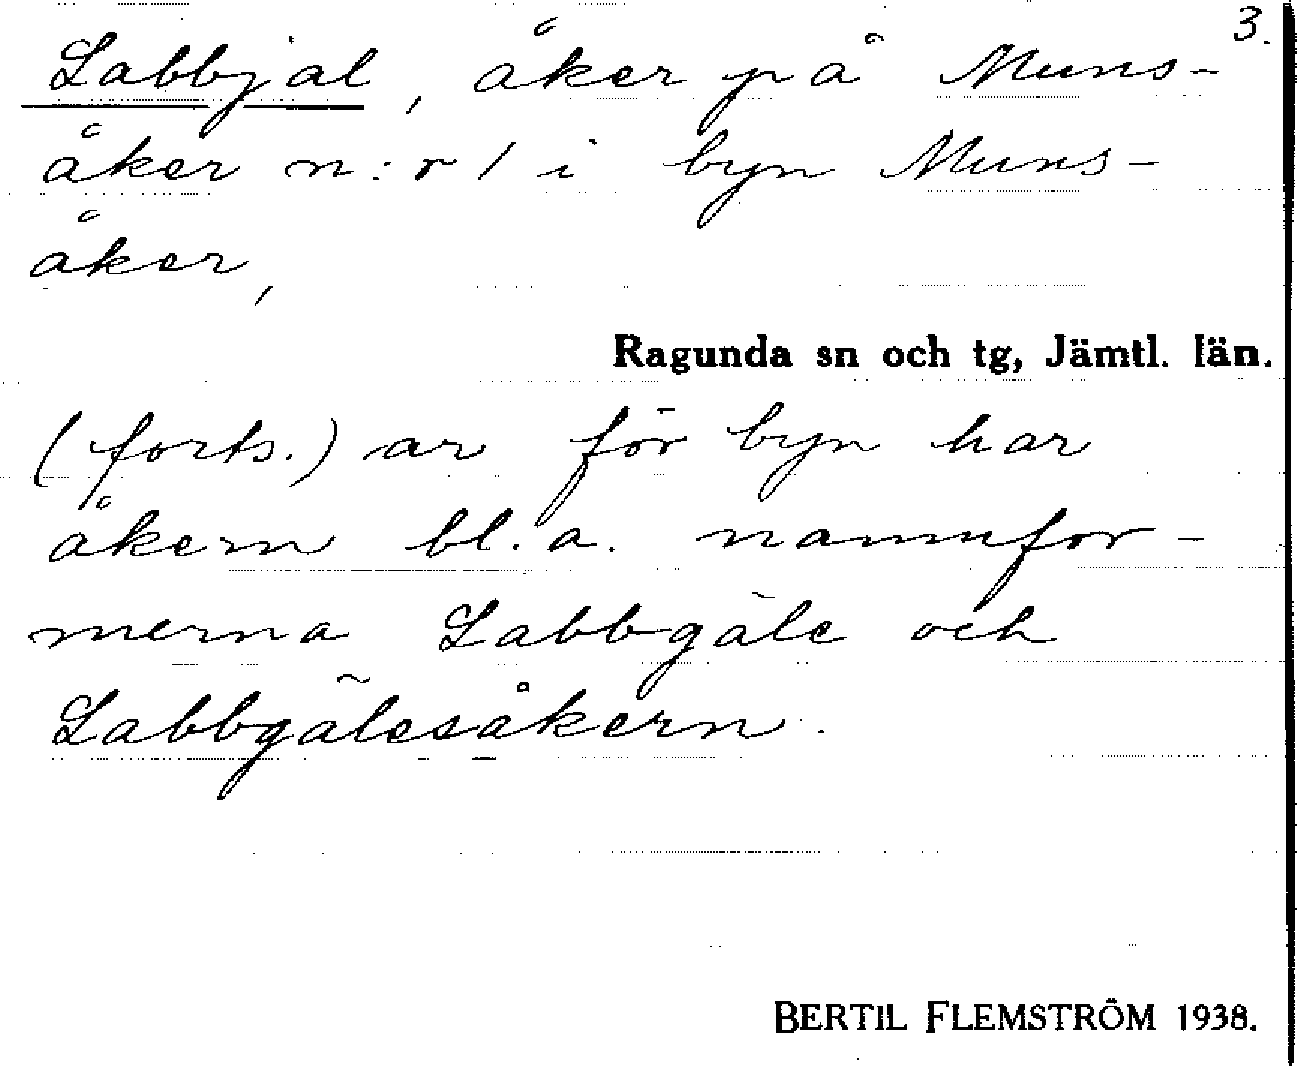 3.
Labbjal, åker på Muns-
åker n:r 1 i byn Muns-
åker,
Ragunda sn och tg, Jämtl. län.
(forts.) ar för byn har
åkern bl.a. namnfor-
merna Labbgäle och
Labbgälesåkern.
BERTIL FLEMSTRÖM 1938.